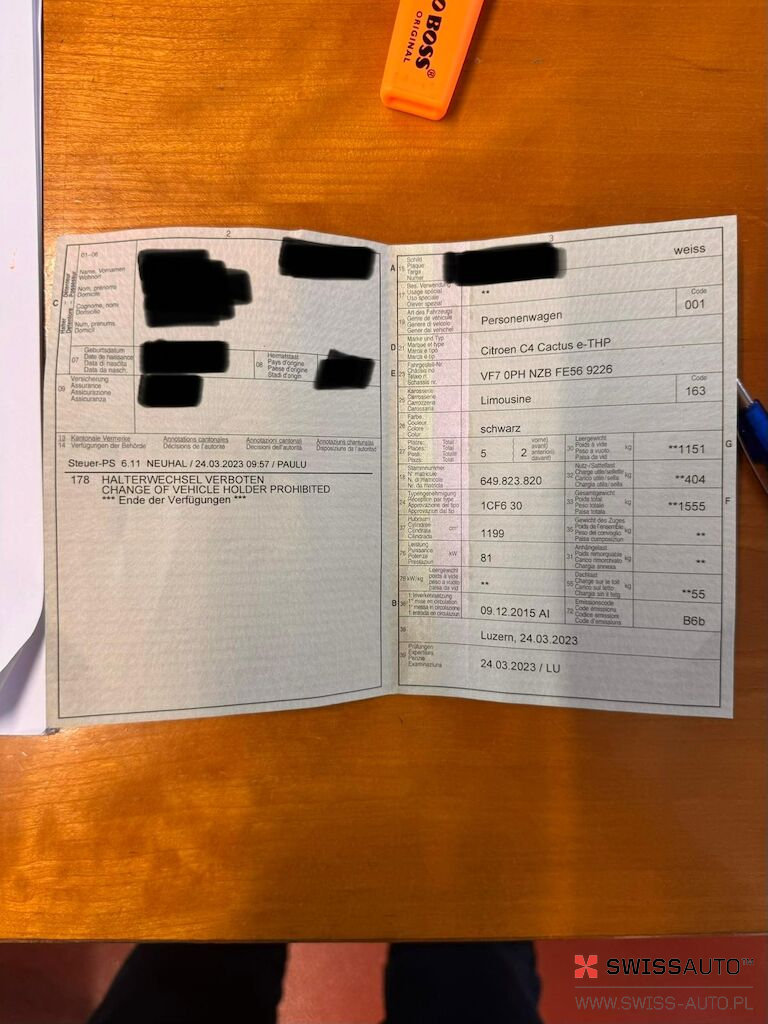 BOSS®
ORIGINAL
2
01–06
Name, Vornamen
Wohnort
Nom, prénoms
Domicile
Cognome, nomi
Domicilio
Num, prenums
Domicil
C
Halter
Détenteur
07
Geburtsdatum
Date de naissance
Data di nascita
Data da nasch.
08
Heimatstaat
Pays d'origine
Paese d'origine
Stadi d'origin
09
Versicherung
Assurance
Assicurazione
Assicuranza
13 Kantonale Vermerke
14 Verfügungen der Behörde
Annotations cantonales
Décisions de l'autorité
Annotazioni cantonali
Decisioni dell'autorità
Annotaziuns chantunalas
Disposiziuns da l'autoritad
Steuer-PS 6.11 NEUHAL / 24.03.2023 09:57 / PAULU
178 HALTERWECHSEL VERBOTEN
CHANGE OF VEHICLE HOLDER PROHIBITED
*** Ende der Verfügungen ***
3
A 15
Schild
Plaque
Targa
Numer
weiss
17
Bes. Verwendung
Usage spécial
Uso speciale
Diever spezial
**
19
Art des Fahrzeugs
Genre de véhicule
Genere di veicolo
Gener dal vehichel
Personenwagen
Code
001
D 21
Marke und Typ
Marque et type
Marca e tipo
Marca e tip
Citroen C4 Cactus e-THP
E 23
Fahrgestell-Nr.
Châssis no
Telaio n.
Schassis nr.
VF7 0PH NZB FE56 9226
25
Karosserie
Carrosserie
Carrozzeria
Carossaria
Limousine
Code
163
26
Farbe
Couleur
Colore
Colur
schwarz
27
Plätze: Total
Places: Total
Posti: Totale
Plazs: Total
5
2
vorne)
avant)
anteriori)
davant)
30
Leergewicht
Poids à vide
Peso a vuoto
Paisa da vid
kg
**1151
G
18
Stammnummer
N° matricule
N. di matricola
Nr. da matricla
649.823.820
32
Nutz-/Sattellast
Charge utile/sellette
Carico utile/sella
Chargia utila/sella
kg
**404
24
Typengenehmigung
Réception par type
Approvazione del tipo
Approvaziun dal tip
1CF6 30
33
Gesamtgewicht
Poids total
Peso totale
Paisa totala
kg
**1555
F
37
Hubraum
Cylindrée
Cilindrata
Cilindrada
cm³
1199
35
Gewicht des Zuges
Poids de l'ensemble
Peso del convoglio
Paisa cumposiziun
kg
**
76
Leistung
Puissance
Potenza
Prestaziun
kW
81
31
Anhängelast
Poids remorquable
Carico rimorchiato
Chargia annexa
kg
**
78 kW/kg
Leergewicht
poids à vide
peso a vuoto
paisa da vid
**
55
Dachlast
Charge sur le toit
Carico sul tetto
Chargia sin il tetg
kg
**55
B 36
1. Inverkehrsetzung
1re mise en circulation
1. messa in circolazione
1. entrada en circulaziun
09.12.2015 AI
72
Emissionscode
Code émissions
Codice emissioni
Code d'emissiuns
B6b
38
Luzern, 24.03.2023
39
Prüfungen
Expertises
Perizie
Examinaziuns
24.03.2023 / LU
SWISSAUTO™
WWW.SWISS-AUTO.PL